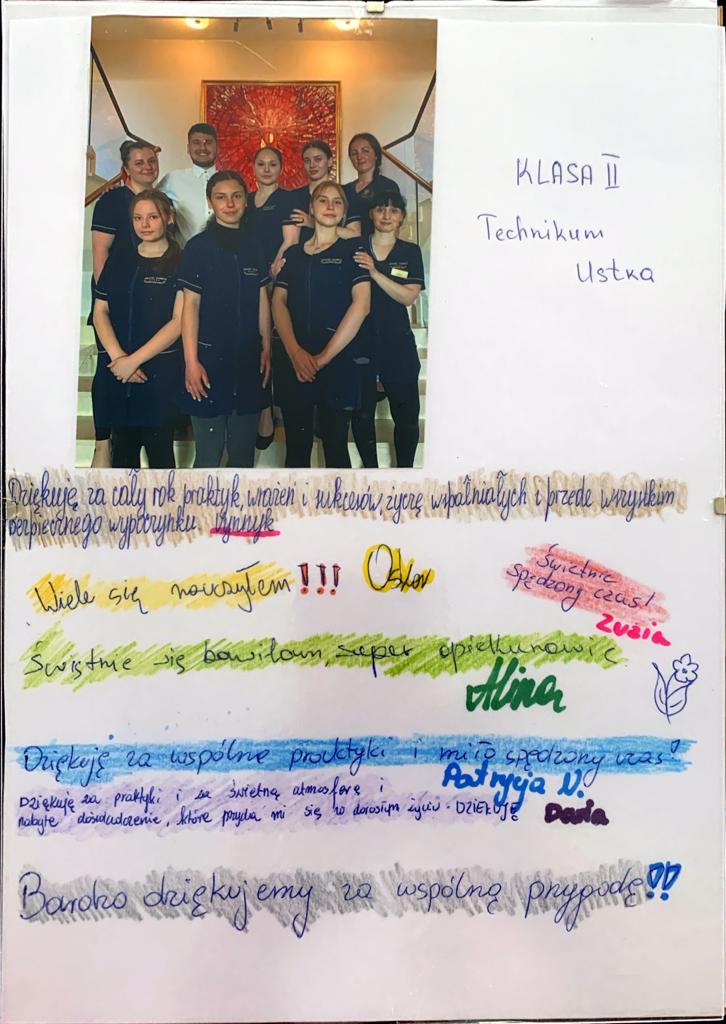 KLASA II
Technikum
Ustka
Dziękuję za cały rok praktyk, wrażeń i sukcesów życzę wspalniałych i przede wszystkim
bezpiecznego wypoczynku.
Wiele się nauczyłem!!! Oskar
Świetnie
spędzony czas!
Zuzia
Świetnie się bawiłam, super opiekunowie
Alina
Dziękuję za wspólne praktyki i miło spędzony czas!
Patrycja N.
Dziękuję za praktyki i za świetną atmosferę i
nabyte doświadczenie, które przyda mi się w dorosłym życiu - DZIĘKUJĘ
Daria
Bardzo dziękujemy za wspólną przygodę!!